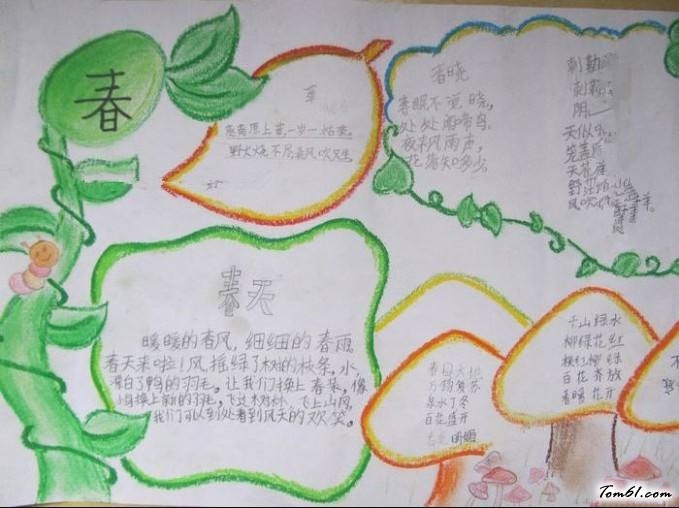 春
草
离离原上草,一岁一枯荣。
野火烧不尽,春风吹又生。
春晓
春眠不觉晓,
处处闻啼鸟。
夜来风雨声,
花落知多少。
敕勒
敕勒
阴
天似
笼盖
天苍
野茫
风吹
春天
暖暖的春风,细细的春雨
春天来啦!风,摇绿了树的枝条,水,
漂白了鸭的羽毛。让我们换上春装,像
换上新的羽毛,飞过树林,飞上山冈,
我们可以到处看到风天的欢笑。
春回大地
万物复苏
泉水丁冬
百花盛开
明媚
千山绿水
柳绿花红
桃红柳绿
百花齐放
春暖花开
Tom61.com